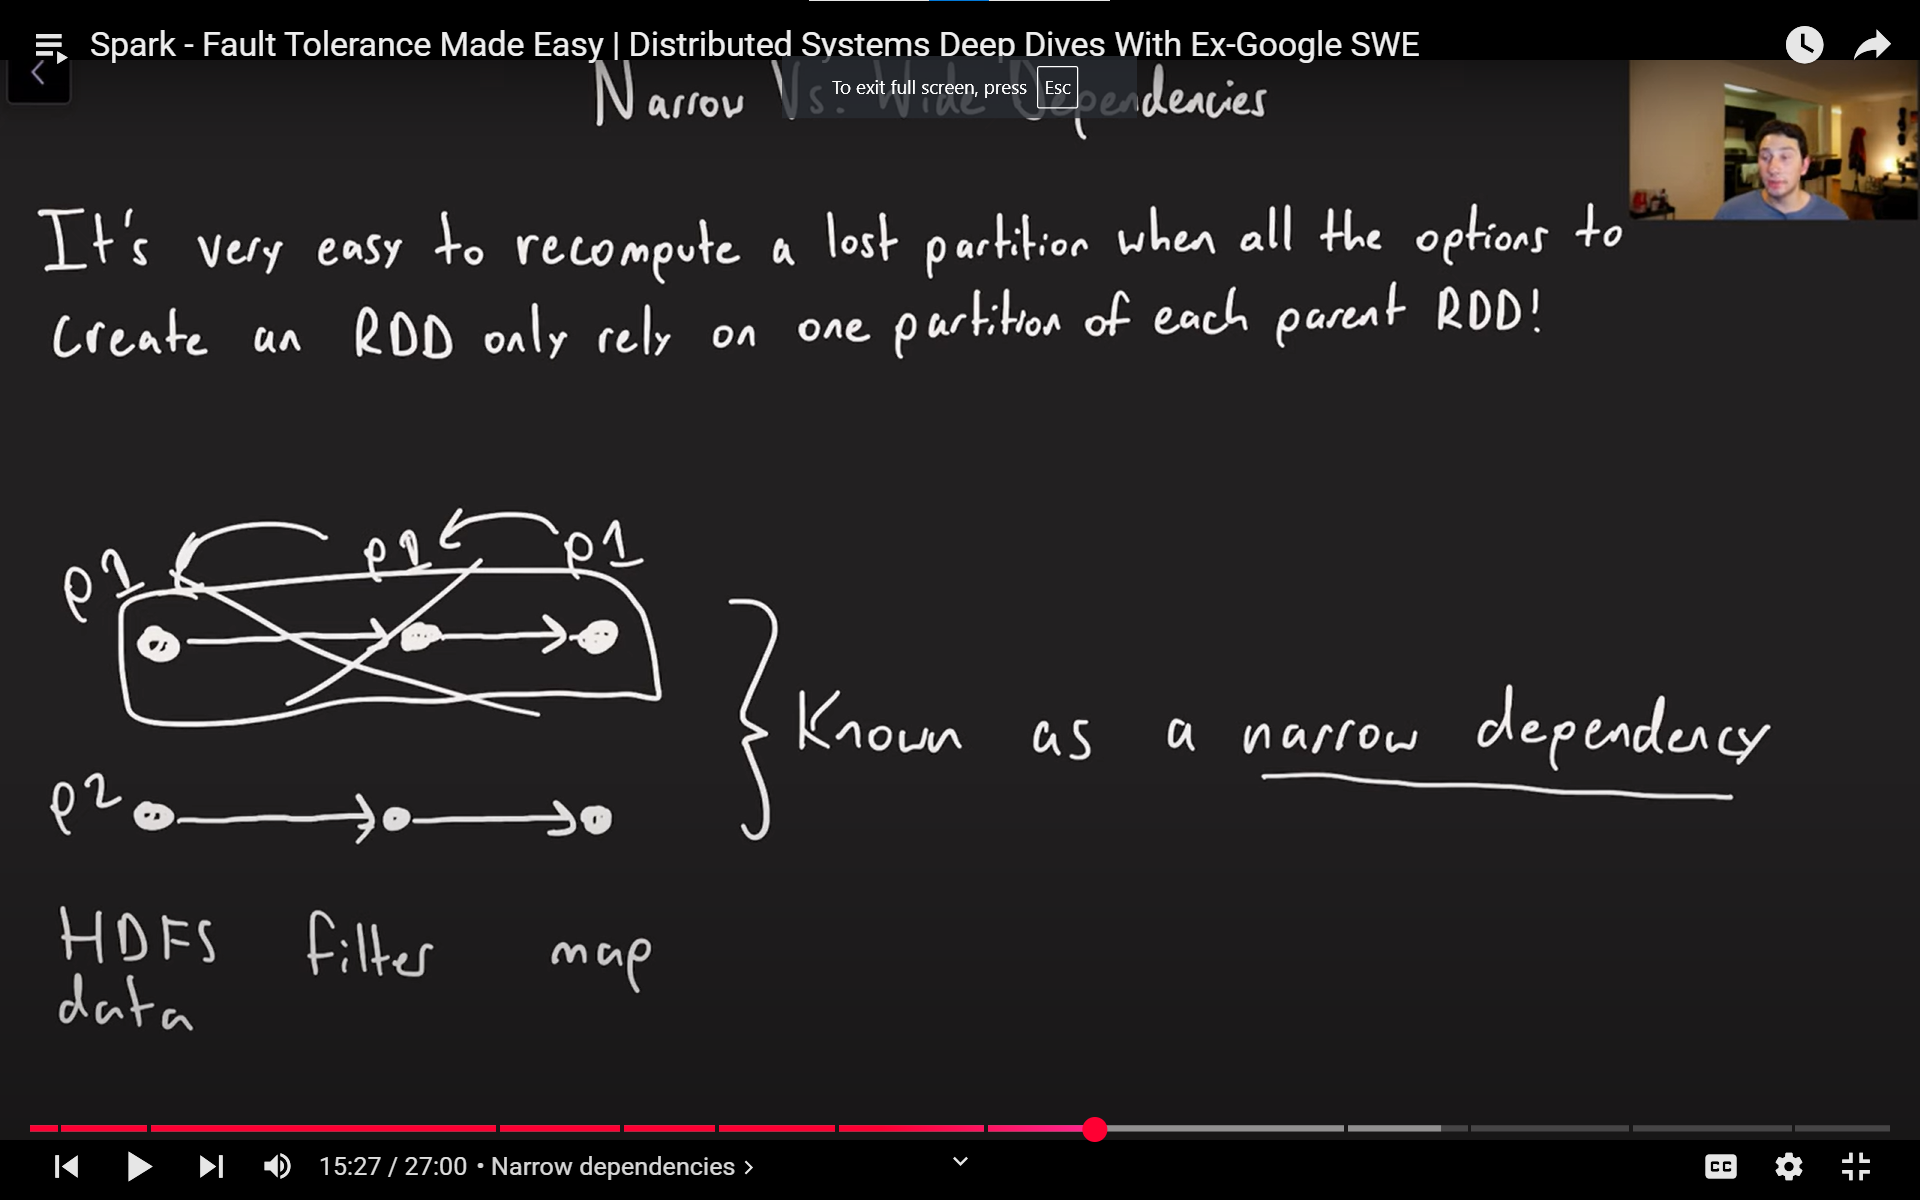 Spark - Fault Tolerance Made Easy | Distributed Systems Deep Dives With Ex-Google SWE
To exit full screen, press Esc
Narrow Vs. Wide Dependencies
It's very easy to recompute a lost partition when all the options to
create an RDD only rely on one partition of each parent RDD!
p1 p1 p1
Known as a narrow dependency
p2
HDFS filter map
data
15:27 / 27:00 • Narrow dependencies
CC